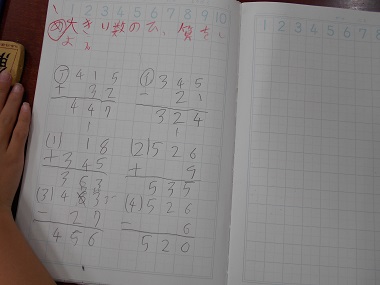 1 2 3 4 5 6 7 8 9 10
1 2 3 4 5 6 7 8
め 大きい数のひっ算をし
よう
ア 4 1 5
+ 3 2
4 4 7
イ 3 4 5
- 2 1
3 2 4
1
(1) 1 8
+ 3 4 5
3 6 3
1
(2) 5 2 6
+ 9
5 3 5
(3) 4 8 3
- 2 7
4 5 6
(4) 5 2 6
- 6
5 2 0